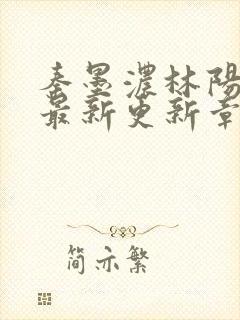 秦墨濃林陽
最新更新章
简亦繁